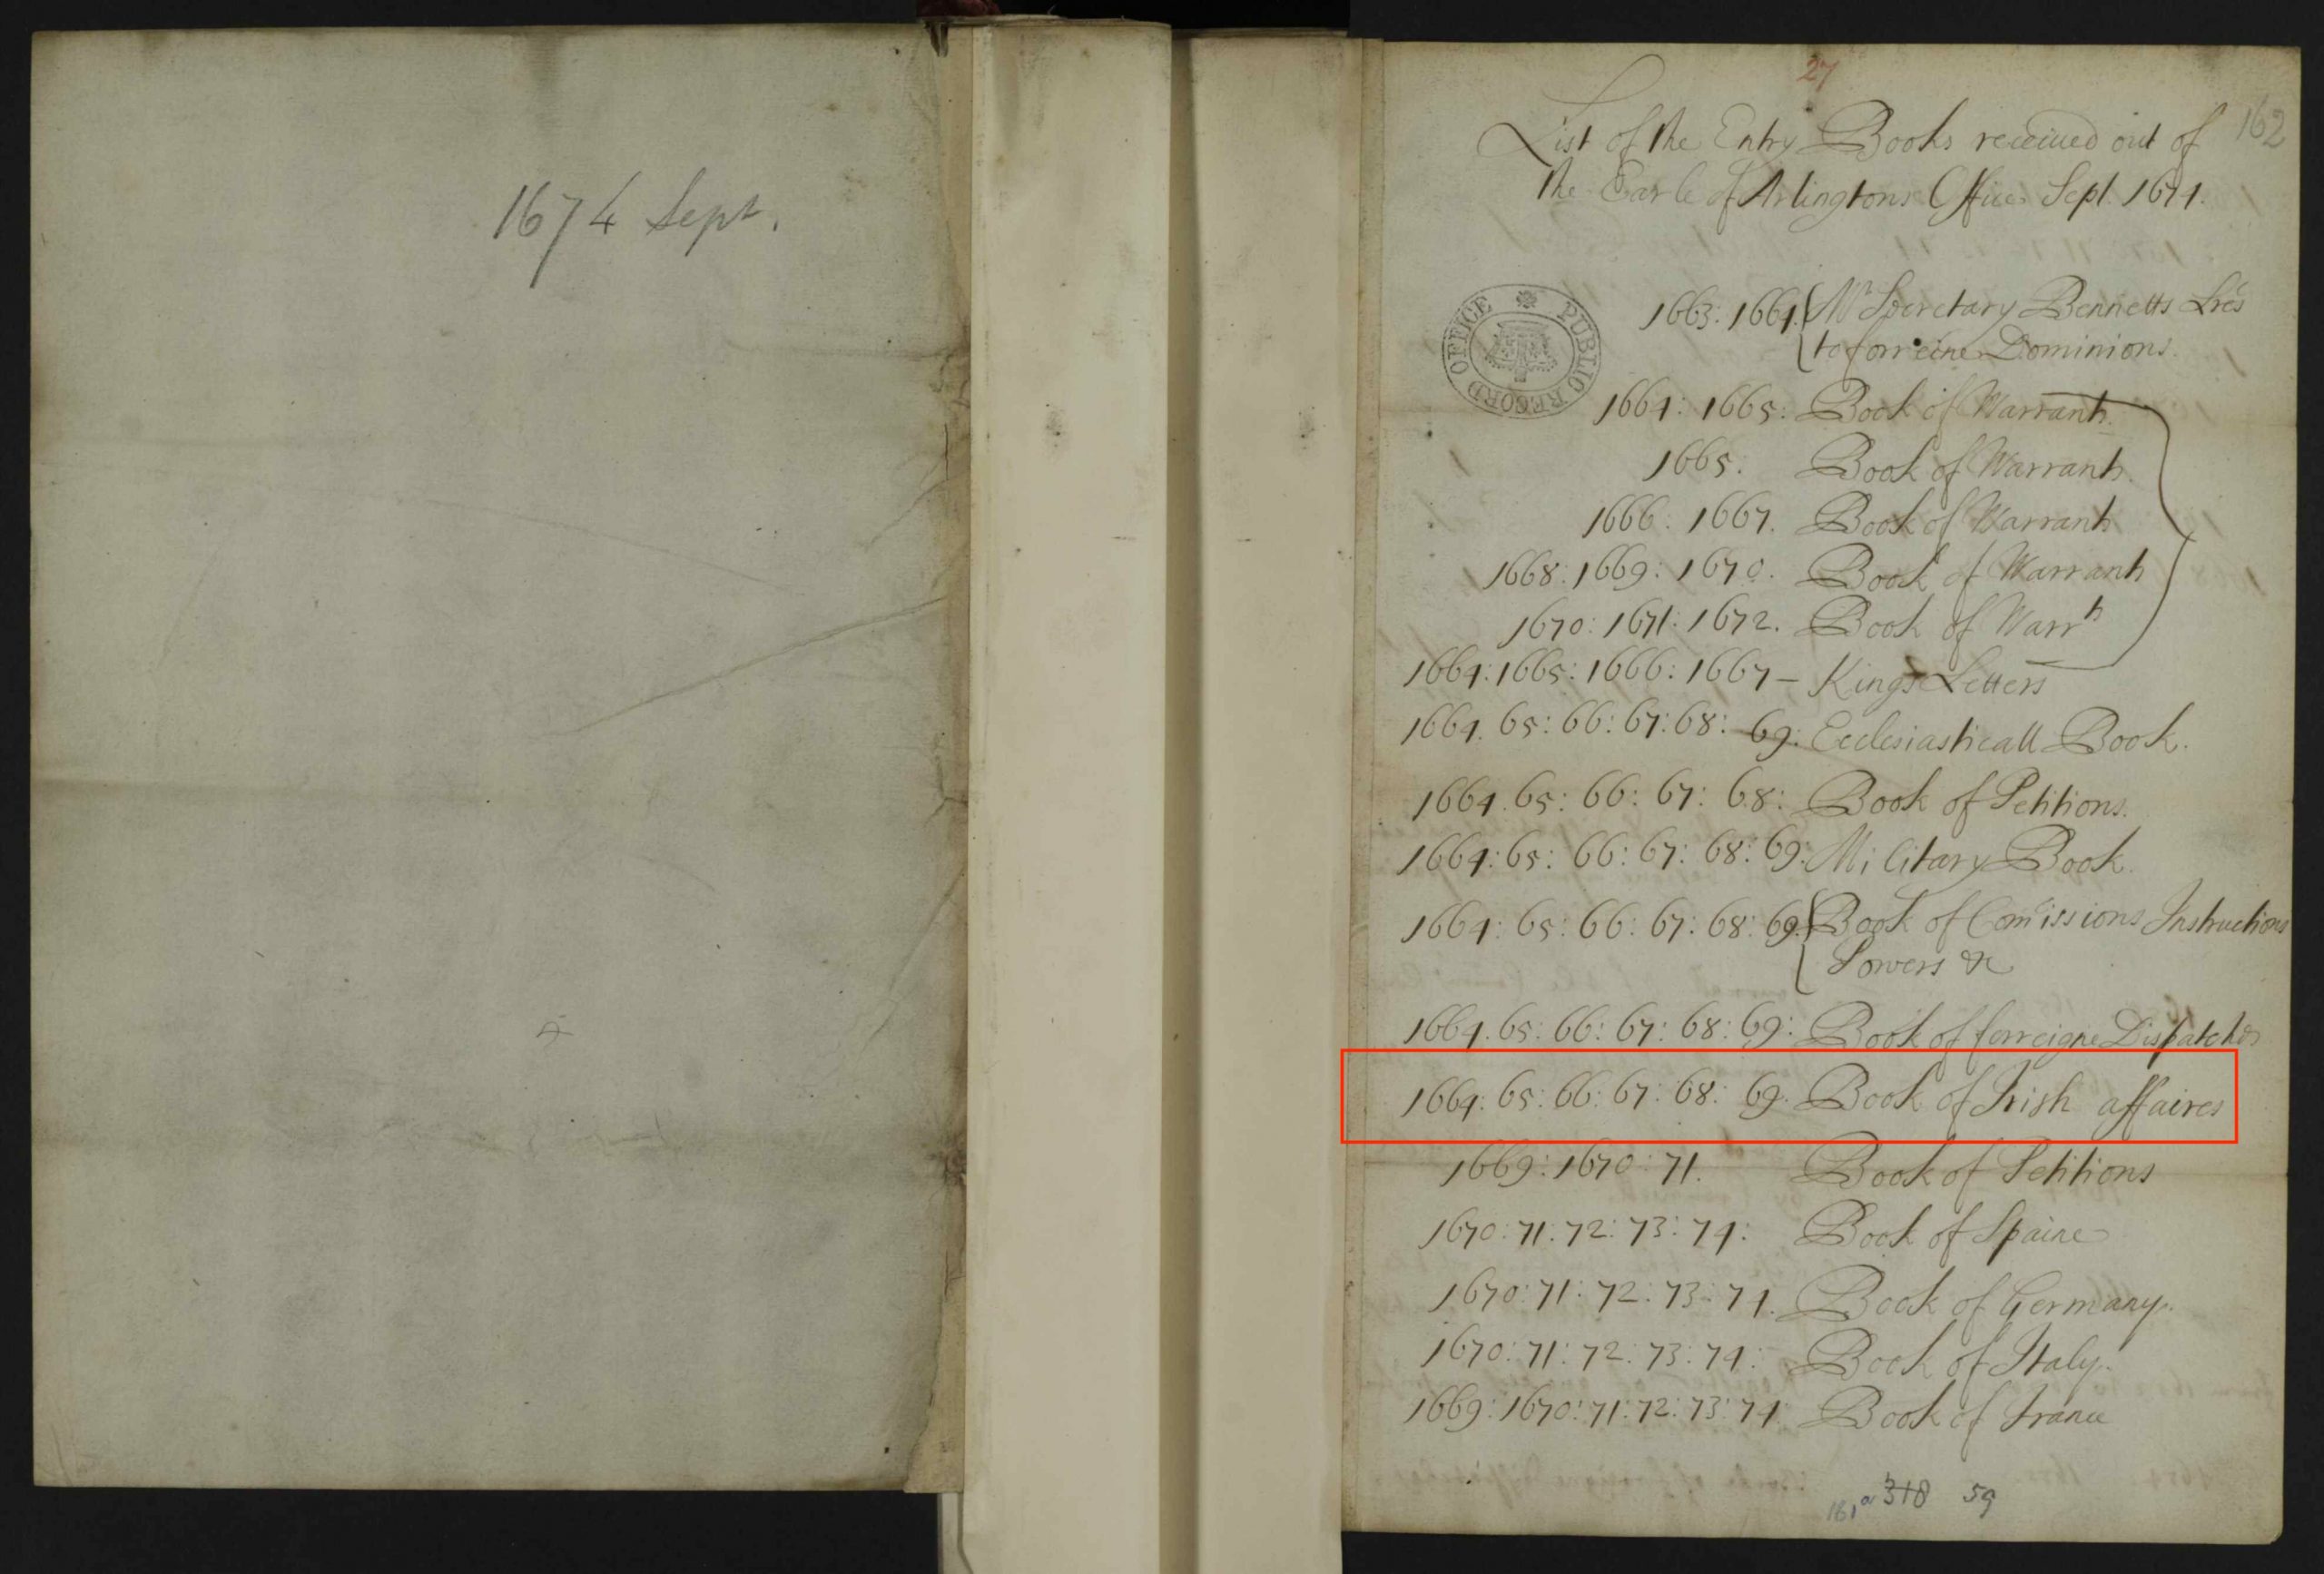 1674 Sept.
27
162
List of the Entry Books received out of
the Earle of Arlingtons Office Sept. 1674.
PUBLIC RECORD OFFICE
1663: 1664. Mr Secretary Bennetts Lres
to forreine Dominions.
1664: 1665: Book of Warrants.
1665. Book of Warrants.
1666. 1667. Book of Warrants
1668: 1669: 1670. Book of Warrants
1670: 1671: 1672. Book of Warrts
1664: 1665: 1666: 1667 – Kings Letters
1664. 65: 66: 67: 68: 69: Ecclesiasticall Book.
1664. 65: 66: 67: 68: Book of Petitions.
1664: 65: 66: 67: 68: 69: Military Book.
1664: 65: 66: 67: 68: 69. Book of Comissions Instructions
Powers &c
1664. 65: 66: 67: 68: 69: Book of forreigne Dispatches
1664: 65: 66: 67: 68: 69. Book of Irish affaires
1669: 1670: 71. Book of Petitions
1670: 71: 72: 73: 74: Book of Spaine
1670: 71: 72: 73: 74. Book of Germany.
1670: 71: 72: 73: 74: Book of Italy.
1669: 1670: 71: 72: 73: 74 Book of France
161a 318 59